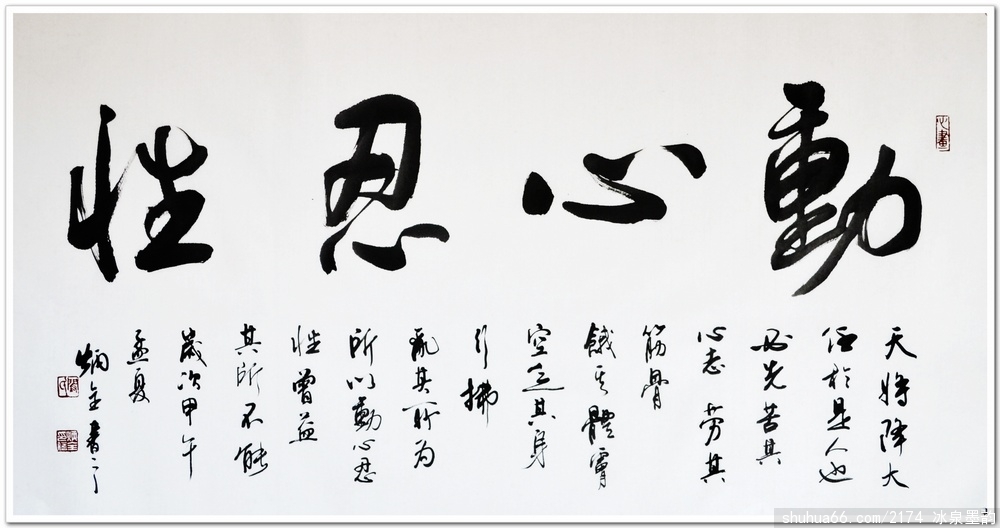 動心忍性
天將降大
任於是人也
必先苦其
心志 勞其
筋骨
餓其體膚
空乏其身
行拂
亂其所為
所以動心忍
性曾益
其所不能
歲次甲午
孟夏
炳金書之
心畫
shuhua66.com/2174 冰泉墨韵